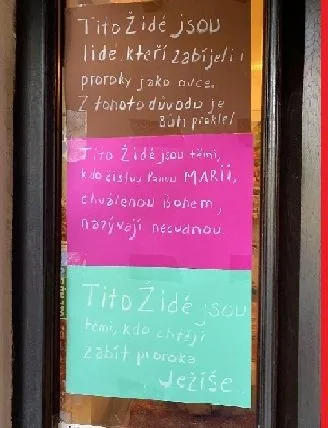 Tito Židé jsou
lidé, kteří zabíjeli
proroky jako ovce.
Z tohoto důvodu je
Bůh proklel
Tito Židé jsou těmi,
kdo čistou Pannu MARII,
chválenou Bohem,
nazývají necudnou
Tito Židé jsou
těmi, kdo chtějí
zabít proroka
Ježíše